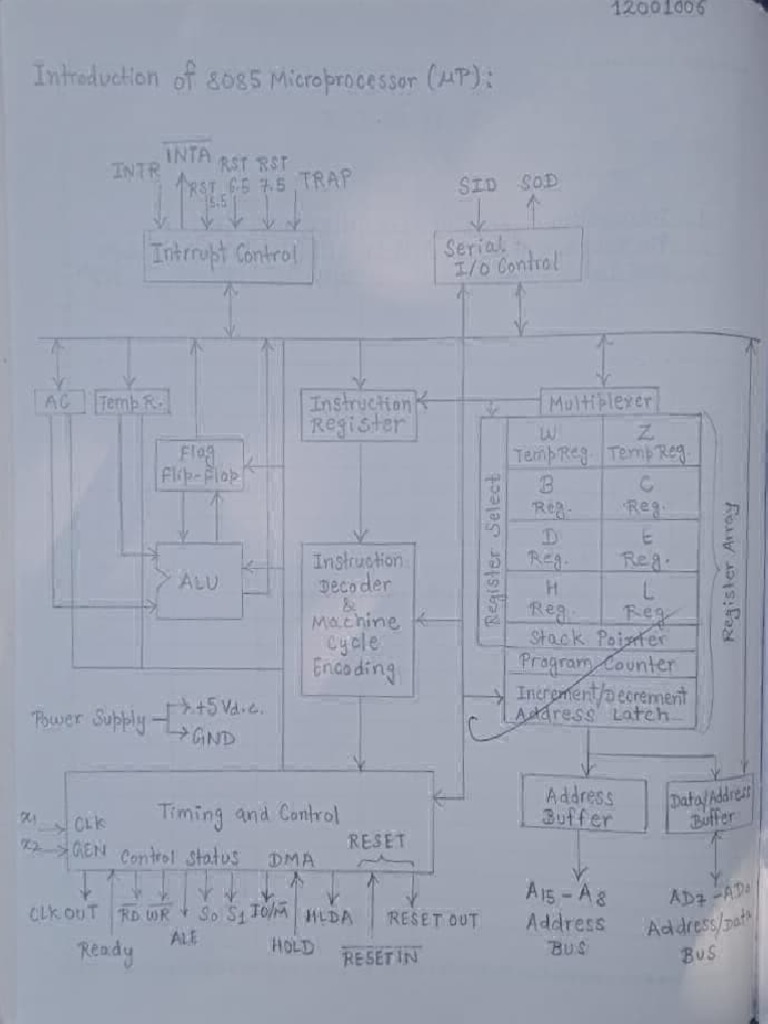 12001006
Introduction of 8085 Microprocessor (μP):
INTR
INTA
RST
5.5
RST
6.5
RST
7.5
TRAP
SID
SOD
Intrrupt Control
Serial
I/O Control
AC
Temp R.
Instruction
Register
Multiplexer
Flag
flip-flop
ALU
Instruction
Decoder
&
Machine
Cycle
Encoding
Register Select
W
Temp Reg.
Z
Temp Reg.
B
Reg.
C
Reg.
D
Reg.
E
Reg.
H
Reg.
L
Reg
Stack Pointer
Program Counter
Increment/Decrement
Address Latch
Register Array
Power Supply
+5 Vd.c.
GND
Timing and Control
x1
CLK
x2
GEN
Control
Status
DMA
RESET
Address
Buffer
Data/Address
Buffer
CLK OUT
Ready
RD
WR
ALE
S0
S1
IO/M
HOLD
HLDA
RESET IN
RESET OUT
A15 - A8
Address
BUS
AD7 - AD0
Address/Data
BUS